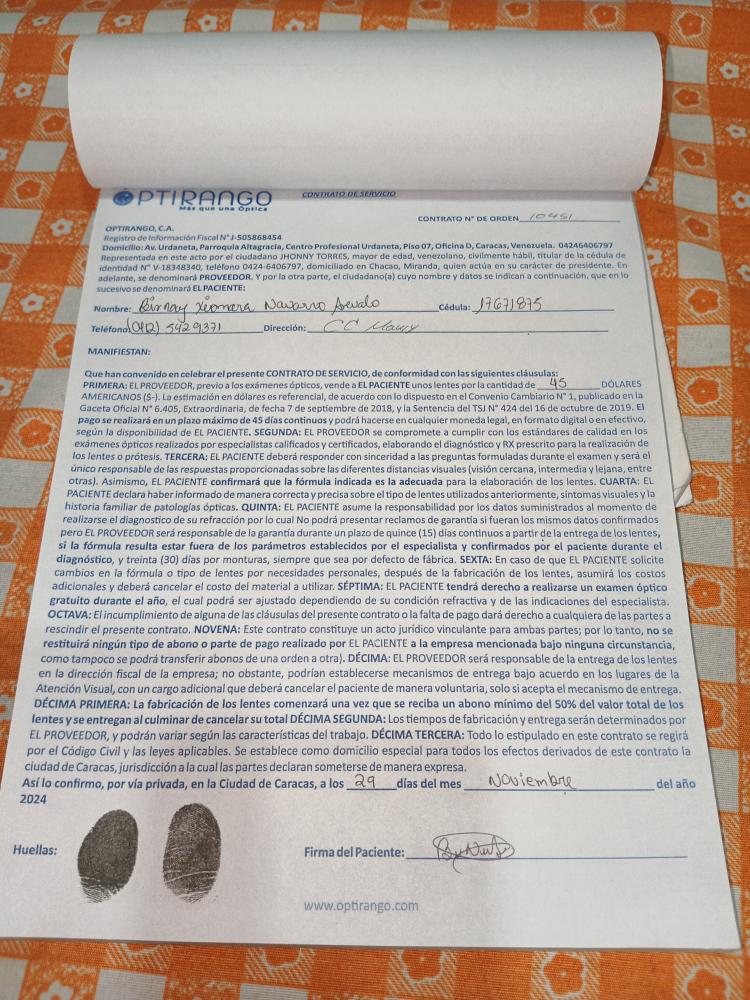 OPTIRANGO
Más que una Óptica
CONTRATO DE SERVICIO
CONTRATO N° DE ORDEN 10451
OPTIRANGO, C.A.
Registro de Información Fiscal N° J-505868454
Domicilio: Av. Urdaneta, Parroquia Altagracia, Centro Profesional Urdaneta, Piso 07, Oficina D, Caracas, Venezuela. 04246406797
Representada en este acto por el ciudadano JHONNY TORRES, mayor de edad, venezolano, civilmente hábil, titular de la cédula de
identidad N° V-18348340, teléfono 0424-6406797, domiciliado en Chacao, Miranda, quien actúa en su carácter de presidente. En
adelante, se denominará PROVEEDOR. Y por la otra parte, el ciudadano(a) cuyo nombre y datos se indican a continuación, que en lo
sucesivo se denominará EL PACIENTE:
Nombre: Xiomara Navarro Cédula: 17671875
Teléfono (0412) 5429371 Dirección: CC
MANIFIESTAN:
Que han convenido en celebrar el presente CONTRATO DE SERVICIO, de conformidad con las siguientes cláusulas:
PRIMERA: EL PROVEEDOR, previo a los exámenes ópticos, vende a EL PACIENTE unos lentes por la cantidad de 45 DÓLARES
AMERICANOS ($-). La estimación en dólares es referencial, de acuerdo con lo dispuesto en el Convenio Cambiario N° 1, publicado en la
Gaceta Oficial N° 6.405, Extraordinaria, de fecha 7 de septiembre de 2018, y la Sentencia del TSJ N° 424 del 16 de octubre de 2019. El
pago se realizará en un plazo máximo de 45 días continuos y podrá hacerse en cualquier moneda legal, en formato digital o en efectivo,
según la disponibilidad de EL PACIENTE. SEGUNDA: EL PROVEEDOR se compromete a cumplir con los estándares de calidad en los
exámenes ópticos realizados por especialistas calificados y certificados, elaborando el diagnóstico y RX prescrito para la realización de
los lentes o prótesis. TERCERA: EL PACIENTE deberá responder con sinceridad a las preguntas formuladas durante el examen y será el
único responsable de las respuestas proporcionadas sobre las diferentes distancias visuales (visión cercana, intermedia y lejana, entre
otras). Asimismo, EL PACIENTE confirmará que la fórmula indicada es la adecuada para la elaboración de los lentes. CUARTA: EL
PACIENTE declara haber informado de manera correcta y precisa sobre el tipo de lentes utilizados anteriormente, síntomas visuales y la
historia familiar de patologías ópticas. QUINTA: EL PACIENTE asume la responsabilidad por los datos suministrados al momento de
realizarse el diagnostico de su refracción por lo cual No podrá presentar reclamos de garantía si fueran los mismos datos confirmados
pero EL PROVEEDOR será responsable de la garantía durante un plazo de quince (15) días continuos a partir de la entrega de los lentes,
si la fórmula resulta estar fuera de los parámetros establecidos por el especialista y confirmados por el paciente durante el
diagnóstico, y treinta (30) días por monturas, siempre que sea por defecto de fábrica. SEXTA: En caso de que EL PACIENTE solicite
cambios en la fórmula o tipo de lentes por necesidades personales, después de la fabricación de los lentes, asumirá los costos
adicionales y deberá cancelar el costo del material a utilizar. SÉPTIMA: EL PACIENTE tendrá derecho a realizarse un examen óptico
gratuito durante el año, el cual podrá ser ajustado dependiendo de su condición refractiva y de las indicaciones del especialista.
OCTAVA: El incumplimiento de alguna de las cláusulas del presente contrato o la falta de pago dará derecho a cualquiera de las partes a
rescindir el presente contrato. NOVENA: Este contrato constituye un acto jurídico vinculante para ambas partes; por lo tanto, no se
restituirá ningún tipo de abono o parte de pago realizado por EL PACIENTE a la empresa mencionada bajo ninguna circunstancia,
como tampoco se podrá transferir abonos de una orden a otra). DÉCIMA: EL PROVEEDOR será responsable de la entrega de los lentes
en la dirección fiscal de la empresa; no obstante, podrían establecerse mecanismos de entrega bajo acuerdo en los lugares de la
Atención Visual, con un cargo adicional que deberá cancelar el paciente de manera voluntaria, solo si acepta el mecanismo de entrega.
DÉCIMA PRIMERA: La fabricación de los lentes comenzará una vez que se reciba un abono mínimo del 50% del valor total de los
lentes y se entregan al culminar de cancelar su total DÉCIMA SEGUNDA: Los tiempos de fabricación y entrega serán determinados por
EL PROVEEDOR, y podrán variar según las características del trabajo. DÉCIMA TERCERA: Todo lo estipulado en este contrato se regirá
por el Código Civil y las leyes aplicables. Se establece como domicilio especial para todos los efectos derivados de este contrato la
ciudad de Caracas, jurisdicción a la cual las partes declaran someterse de manera expresa.
Así lo confirmo, por vía privada, en la Ciudad de Caracas, a los 29 días del mes Noviembre del año
2024
Huellas:
Firma del Paciente:
www.optirango.com